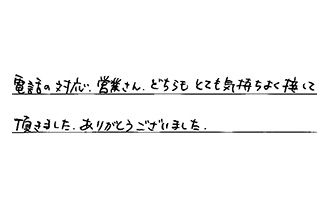 電話の対応、営業さん、どちらもとても気持ちよく接して
頂きました。ありがとうございました。